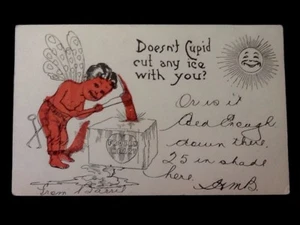 Doesn't Cupid
cut any ice
with you?
Or is it
Red Enough
down there.
25 in shade
here.